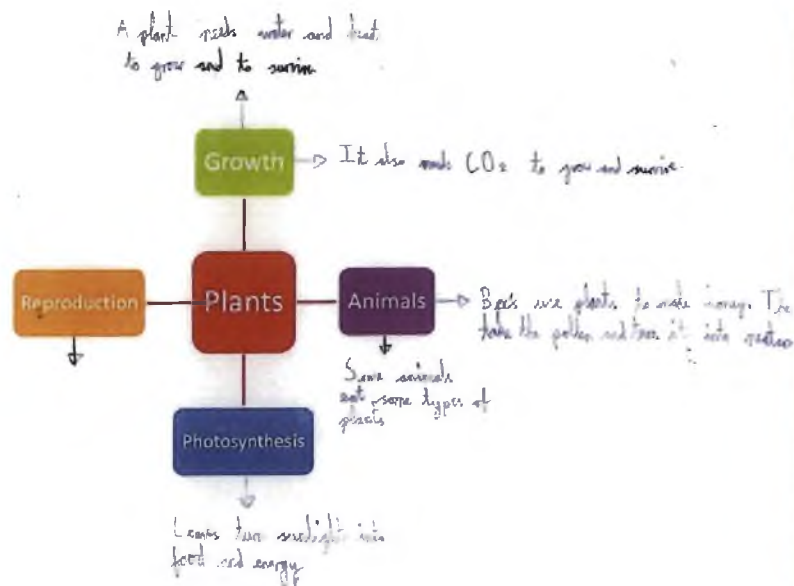 A plant needs water and heat
to grow and to survive
Growth
It also needs CO₂ to grow and survive
Reproduction
Plants
Animals
Bees use plants to make honey. The
take the pollen and turn it into nectar
Some animals
eat some types of
plants
Photosynthesis
Leaves turn sunlight into
food and energy